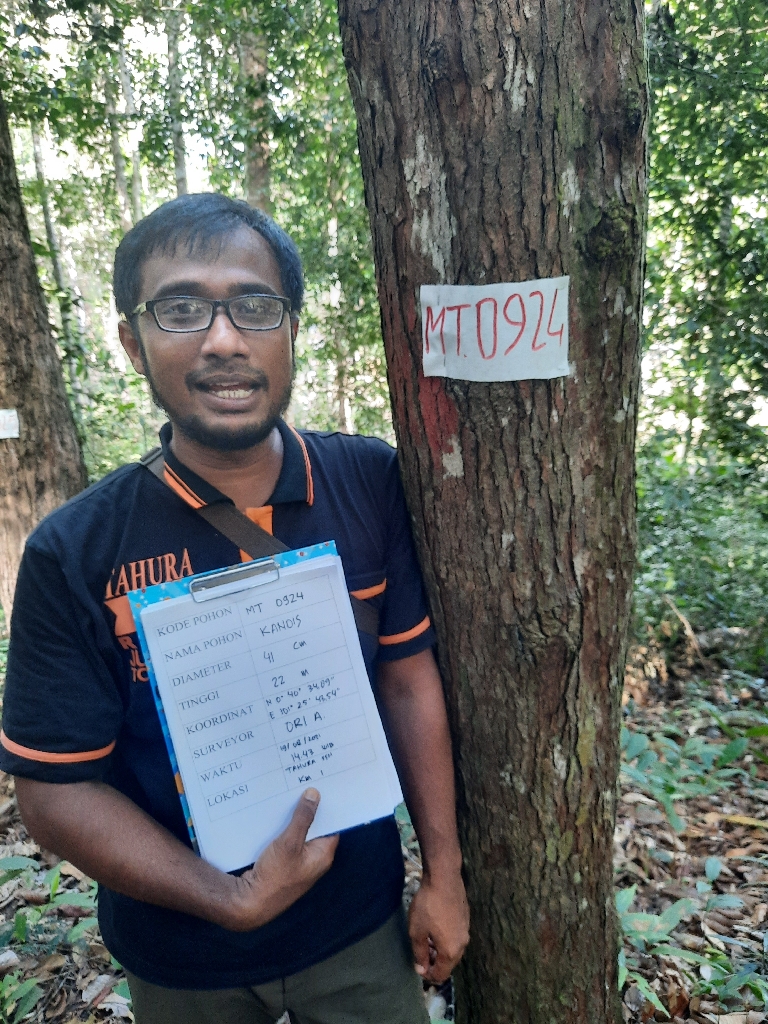 MT.0924
TAHURA
KODE POHON MT 0924
NAMA POHON KANDIS
DIAMETER 41 cm
TINGGI 22 m
KOORDINAT N 0° 40' 34.09"
E 101° 25' 42.54"
SURVEYOR ORI A.
WAKTU
14.43 WIB
LOKASI TAHURA
KM 1